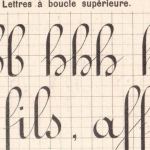 Lettres à boucle supérieure.
bb hhh
fils, aff